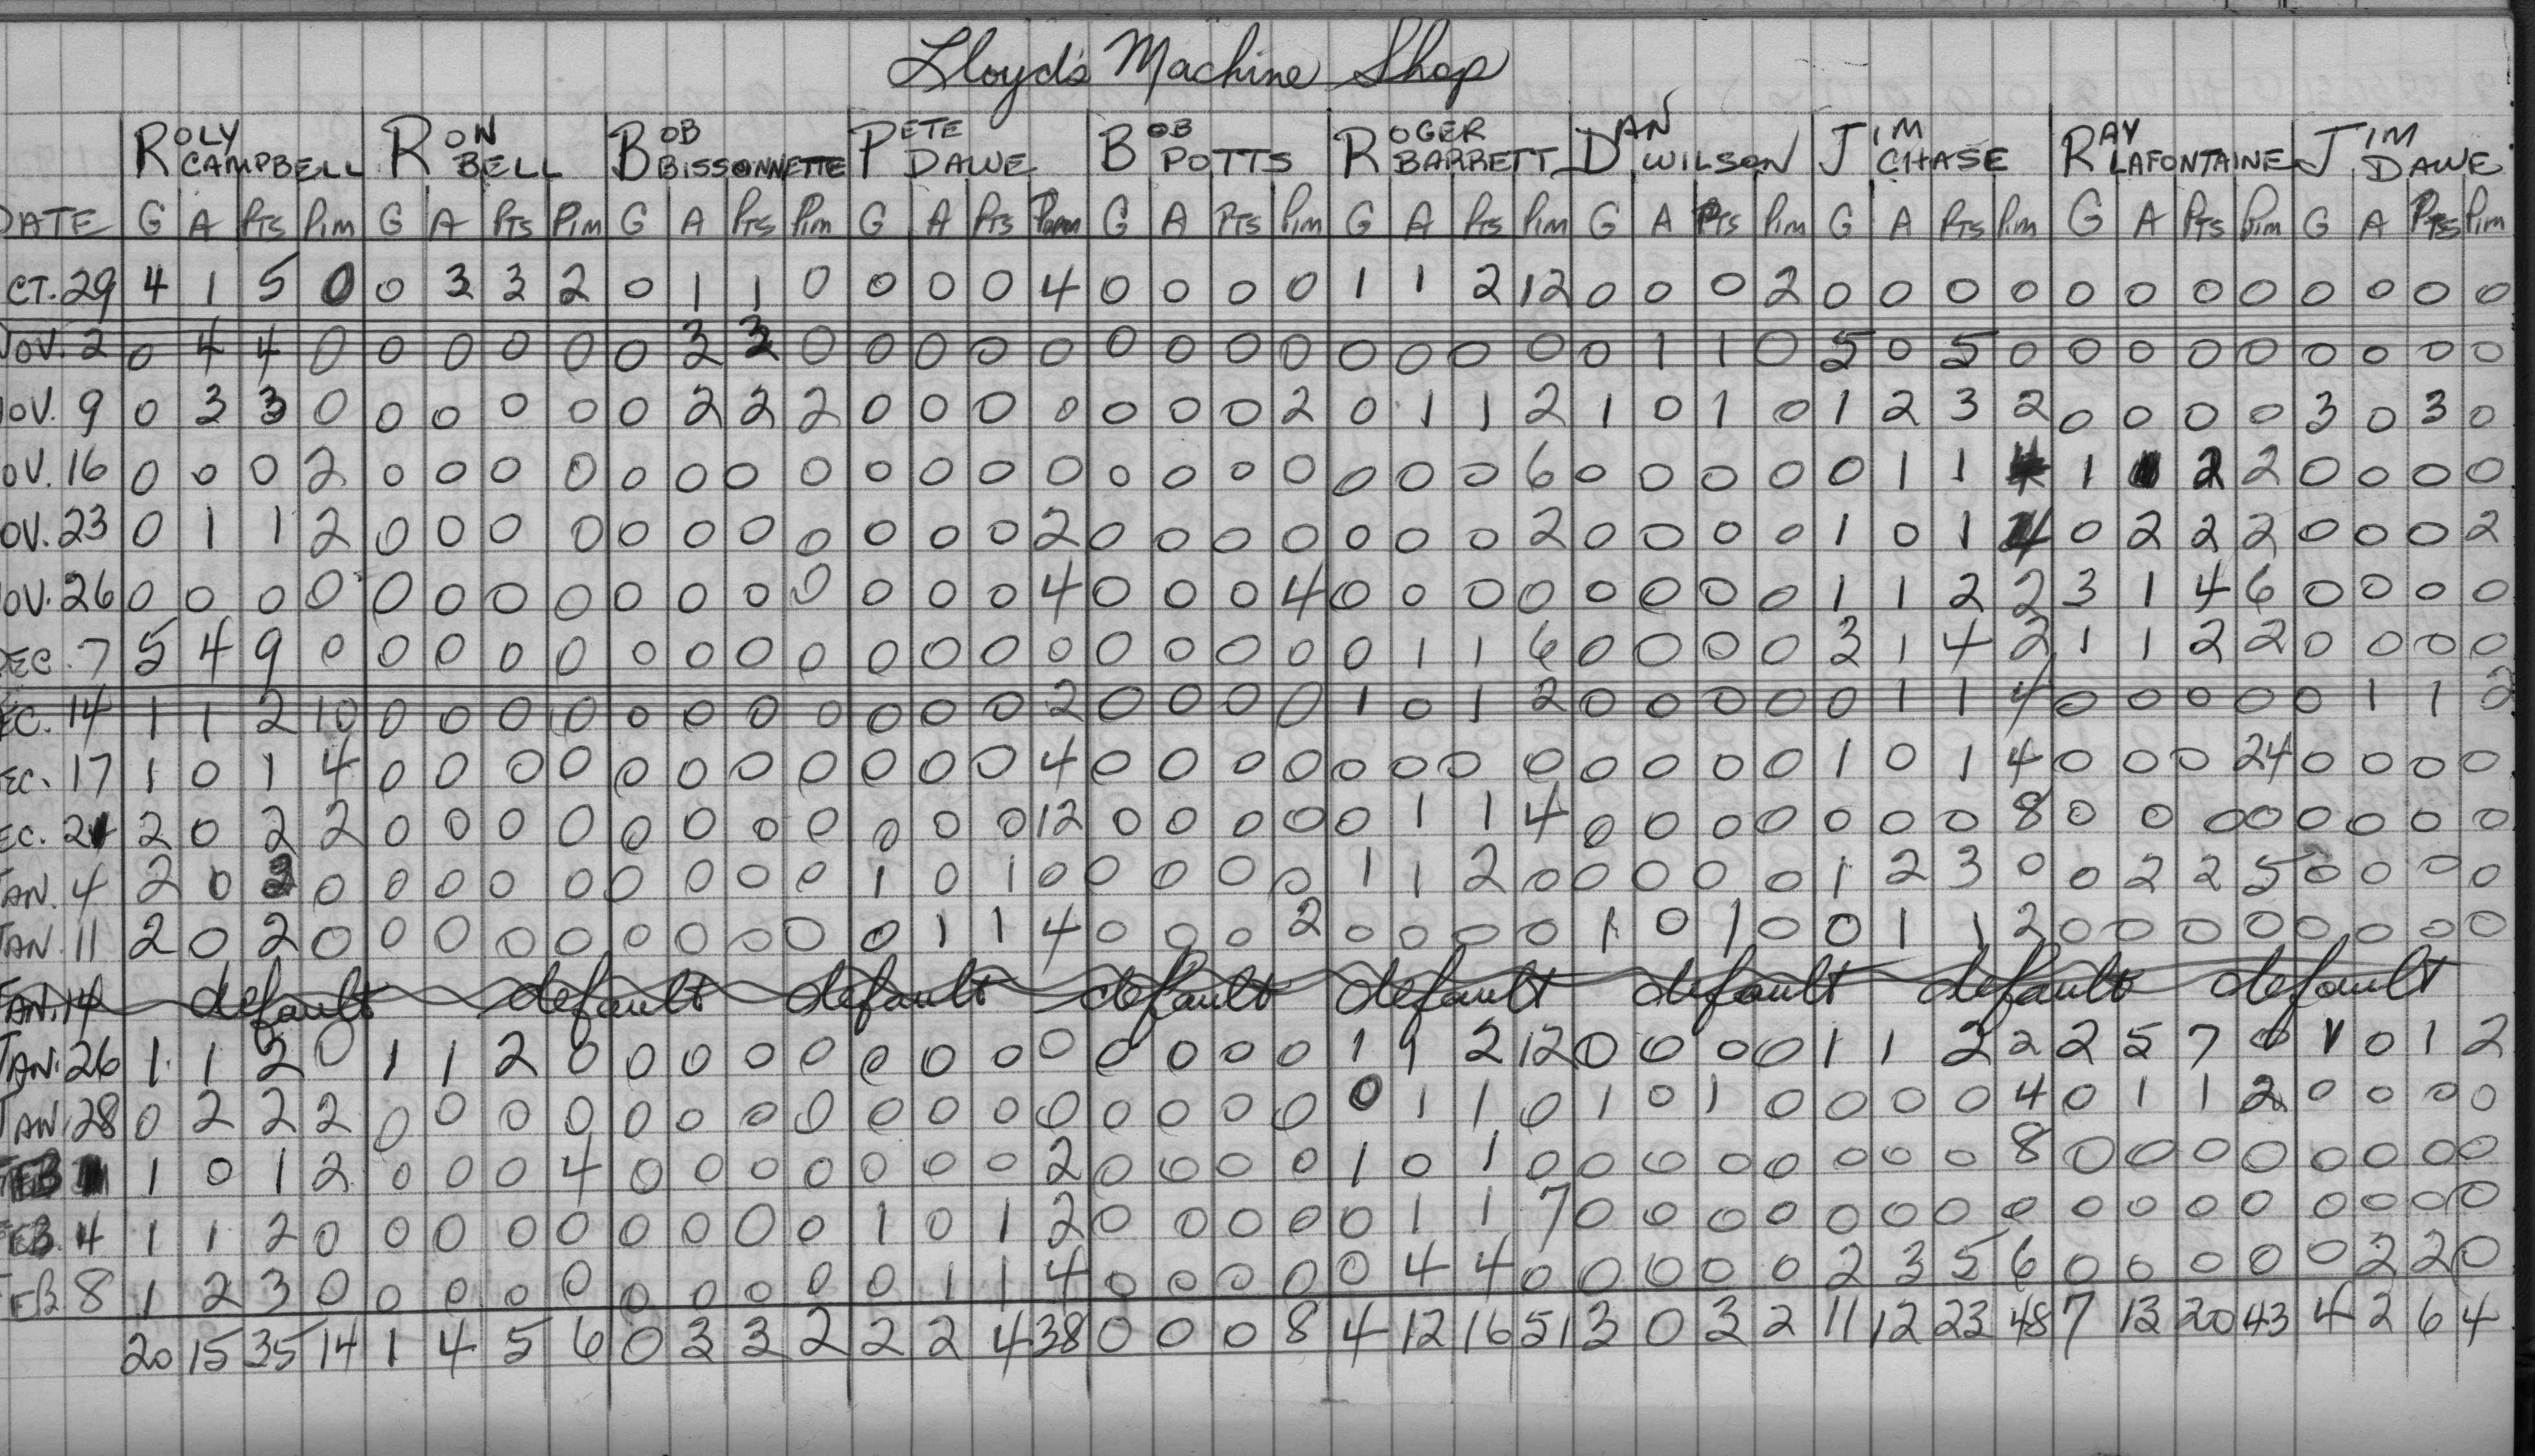 Lloyd's Machine Shop
ROLY CAMPBELL RON BELL BOB BISSONNETTE PETE DAWE BOB POTTS ROGER BARRETT DAN WILSON JIM CHASE RAY LAFONTAINE JIM DAWE
DATE G A PTS Pim G A PTS Pim G A PTS Pim G A PTS Pim G A PTS Pim G A PTS Pim G A PTS Pim G A PTS Pim G A PTS Pim G A PTS Pim
CT. 29 4 1 5 0 0 3 3 2 0 1 1 0 0 0 0 4 0 0 0 0 1 1 2 12 0 0 0 2 0 0 0 0 0 0 0 0 0 0 0 0
NOV. 2 0 4 4 0 0 0 0 0 0 3 3 0 0 0 0 0 0 0 0 0 0 0 0 0 0 1 1 0 5 0 5 0 0 0 0 0 0 0 0 0
OV. 9 0 3 3 0 0 0 0 0 0 2 2 2 0 0 0 0 0 0 0 2 0 1 1 2 1 0 1 0 1 2 3 2 0 0 0 0 3 0 3 0
OV. 16 0 0 0 2 0 0 0 0 0 0 0 0 0 0 0 0 0 0 0 0 0 0 0 6 0 0 0 0 0 1 1 4 1 1 2 2 0 0 0 0
OV. 23 0 1 1 2 0 0 0 0 0 0 0 0 0 0 0 2 0 0 0 0 0 0 0 2 0 0 0 0 1 0 1 4 0 2 2 2 0 0 0 2
OV. 26 0 0 0 0 0 0 0 0 0 0 0 0 0 0 0 4 0 0 0 4 0 0 0 0 0 0 0 0 1 1 2 2 3 1 4 6 0 0 0 0
DEC. 7 5 4 9 0 0 0 0 0 0 0 0 0 0 0 0 0 0 0 0 0 0 1 1 6 0 0 0 0 3 1 4 2 1 1 2 2 0 0 0 0
EC. 14 1 1 2 10 0 0 0 0 0 0 0 0 0 0 0 2 0 0 0 0 1 0 1 2 0 0 0 0 0 1 1 4 0 0 0 0 0 1 1 2
EC. 17 1 0 1 4 0 0 0 0 0 0 0 0 0 0 0 4 0 0 0 0 0 0 0 0 0 0 0 0 1 0 1 4 0 0 0 24 0 0 0 0
EC. 21 2 0 2 2 0 0 0 0 0 0 0 0 0 0 0 12 0 0 0 0 0 1 1 4 0 0 0 0 0 0 0 8 0 0 0 0 0 0 0 0
JAN. 4 2 0 2 0 0 0 0 0 0 0 0 0 1 0 1 0 0 0 0 0 1 1 2 0 0 0 0 0 1 2 3 0 0 2 2 5 0 0 0 0
JAN. 11 2 0 2 0 0 0 0 0 0 0 0 0 0 1 1 4 0 0 0 2 0 0 0 0 1 0 1 0 0 1 1 2 0 0 0 0 0 0 0 0
JAN. 14 default default default default default default default default
JAN. 26 1 1 2 0 1 1 2 0 0 0 0 0 0 0 0 0 0 0 0 0 1 1 2 12 0 0 0 0 1 1 2 2 2 5 7 0 1 0 1 2
JAN. 28 0 2 2 2 0 0 0 0 0 0 0 0 0 0 0 0 0 0 0 0 0 1 1 0 1 0 1 0 0 0 0 4 0 1 1 2 0 0 0 0
FEB 1 0 1 2 0 0 0 4 0 0 0 0 0 0 0 2 0 0 0 0 1 0 1 0 0 0 0 0 0 0 0 8 0 0 0 0 0 0 0 0
FEB. 4 1 1 2 0 0 0 0 0 0 0 0 0 1 0 1 2 0 0 0 0 0 1 1 7 0 0 0 0 0 0 0 0 0 0 0 0 0 0 0 0
FEB 8 1 2 3 0 0 0 0 0 0 0 0 0 0 1 1 4 0 0 0 0 0 4 4 0 0 0 0 0 2 3 5 6 0 0 0 0 0 2 2 0
20 15 35 14 1 4 5 6 0 3 3 2 2 2 4 38 0 0 0 8 4 12 16 51 3 0 3 2 11 12 23 48 7 13 20 43 4 2 6 4